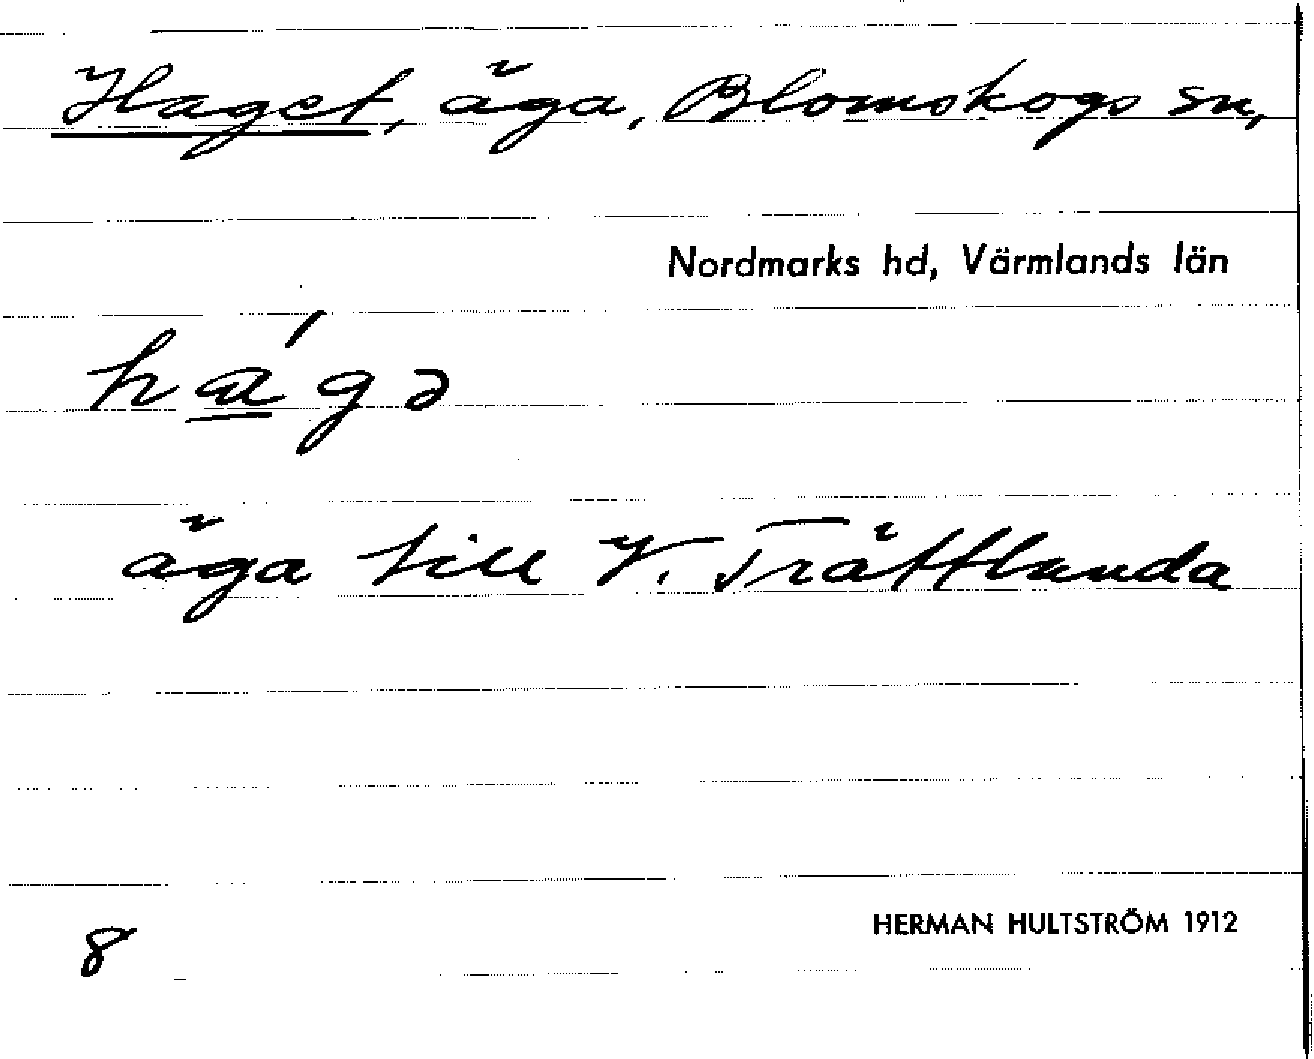 Haget, äga, Blomskogs sn,
Nordmarks hd, Värmlands län
ha̲´gə
äga till V. Trättlanda
8
HERMAN HULTSTRÖM 1912